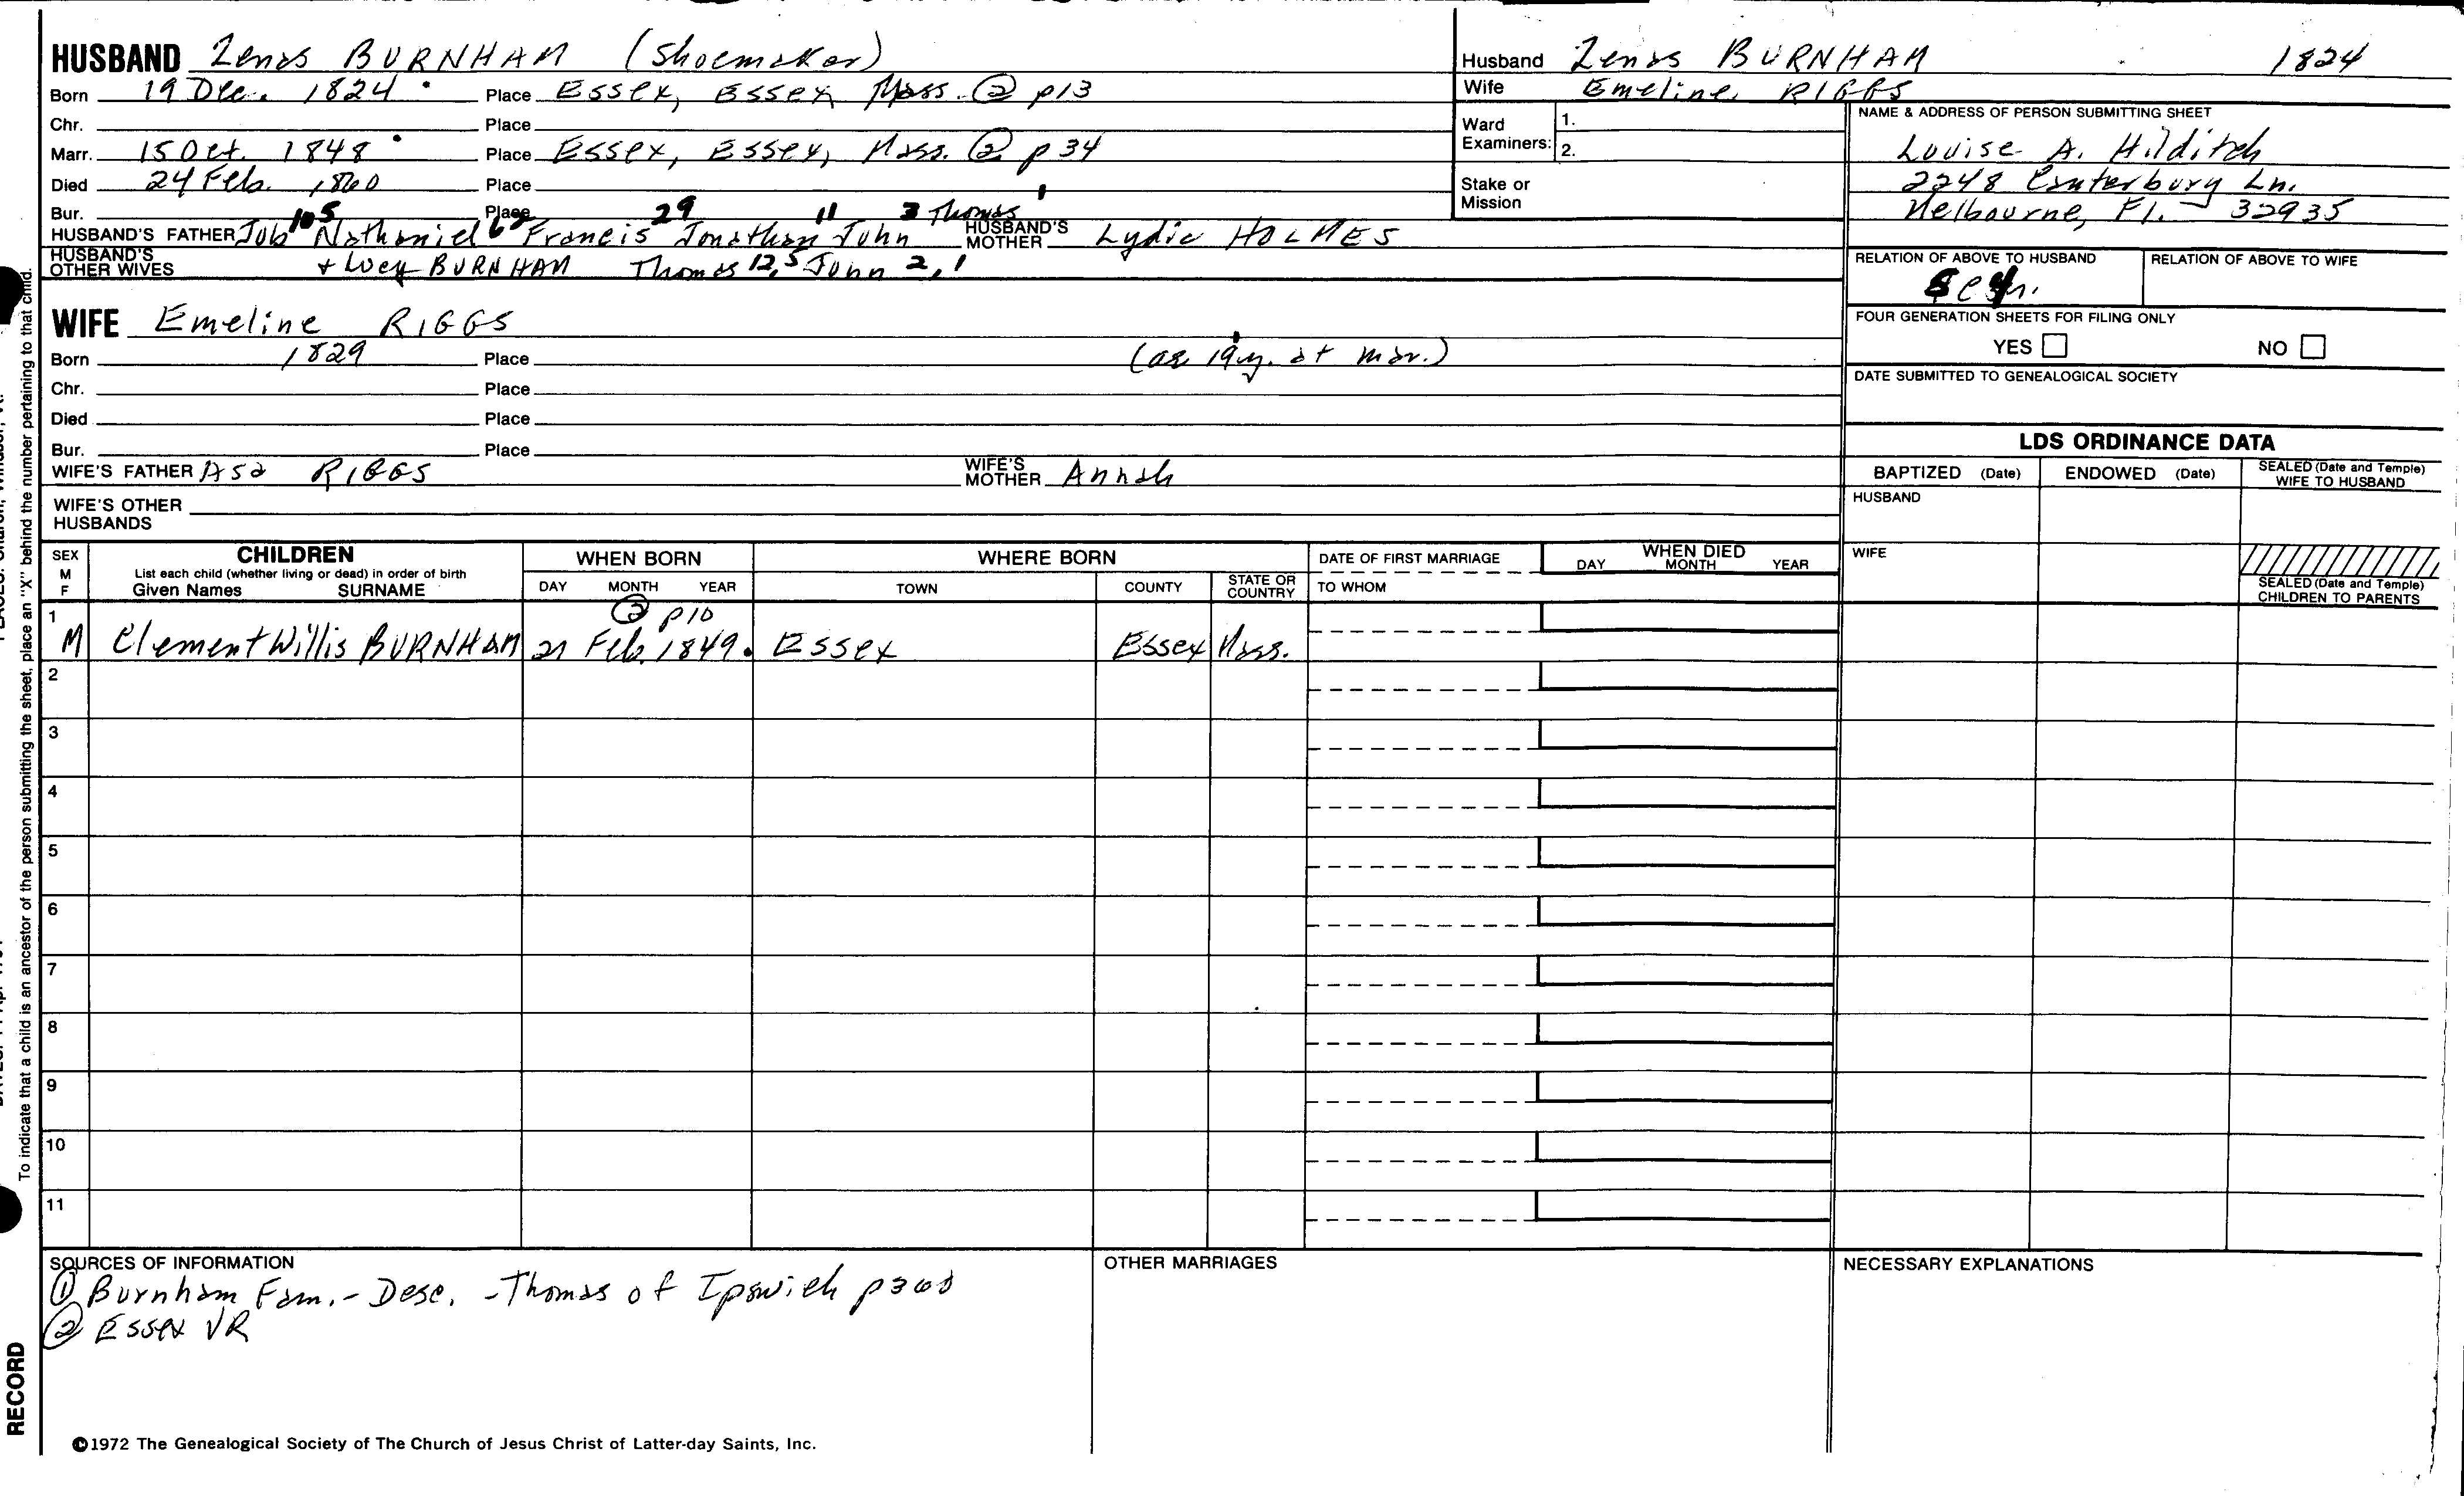 HUSBAND Zenas BURNHAM (Shoemaker)
Born 19 Dec. 1824 Place Essex, Essex, Mass. ② p13
Chr. Place
Marr. 15 Oct. 1848 Place Essex, Essex, Mass. ② p 34
Died 24 Feb. 1860 Place
Bur. Place
HUSBAND'S FATHER Job 105 Nathaniel Francis 29 Jonathan 11 John 3 Thomas 1 HUSBAND'S MOTHER Lydia HOLMES
HUSBAND'S OTHER WIVES + Lucy BURNHAM Thomas 12, 5 John 2, 1
WIFE Emeline RIGGS
Born 1829 Place (ae 19y. at mar.)
Chr. Place
Died Place
Bur. Place
WIFE'S FATHER Asa RIGGS WIFE'S MOTHER Annah
WIFE'S OTHER HUSBANDS
Husband Zenas BURNHAM 1824
Wife Emeline RIGGS
Ward Examiners: 1.
2.
Stake or Mission
NAME & ADDRESS OF PERSON SUBMITTING SHEET
Louise A. Hilditch
2248 Canterbury Ln.
Melbourne, Fl. 32935
RELATION OF ABOVE TO HUSBAND RELATION OF ABOVE TO WIFE
FOUR GENERATION SHEETS FOR FILING ONLY
YES NO
DATE SUBMITTED TO GENEALOGICAL SOCIETY
LDS ORDINANCE DATA
BAPTIZED (Date) ENDOWED (Date) SEALED (Date and Temple) WIFE TO HUSBAND
HUSBAND
WIFE
SEALED (Date and Temple) CHILDREN TO PARENTS
SEX M F
CHILDREN
List each child (whether living or dead) in order of birth
Given Names SURNAME
WHEN BORN
DAY MONTH YEAR
WHERE BORN
TOWN COUNTY STATE OR COUNTRY
DATE OF FIRST MARRIAGE
TO WHOM
WHEN DIED
DAY MONTH YEAR
② p10
1 M Clement Willis BURNHAM 21 Feb. 1849. Essex Essex Mass.
2
3
4
5
6
7
8
9
10
11
SOURCES OF INFORMATION
① Burnham Fam. - Desc. - Thomas of Ipswich
② Essex VR
OTHER MARRIAGES
NECESSARY EXPLANATIONS
©1972 The Genealogical Society of The Church of Jesus Christ of Latter-day Saints, Inc.
To indicate that a child is an ancestor of the person submitting the sheet, place an "X" behind the number pertaining to that child.
RECORD